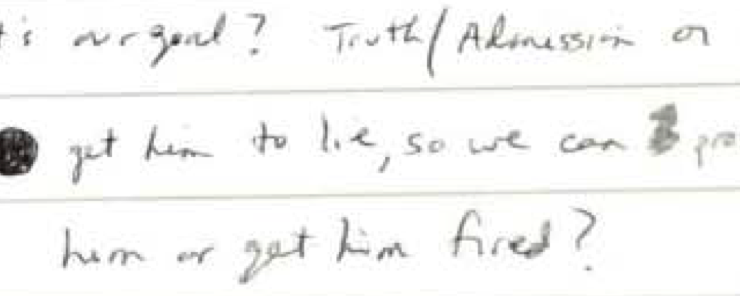 t's our goal? Truth/Admission or
get him to lie, so we can pro
him or get him fired?